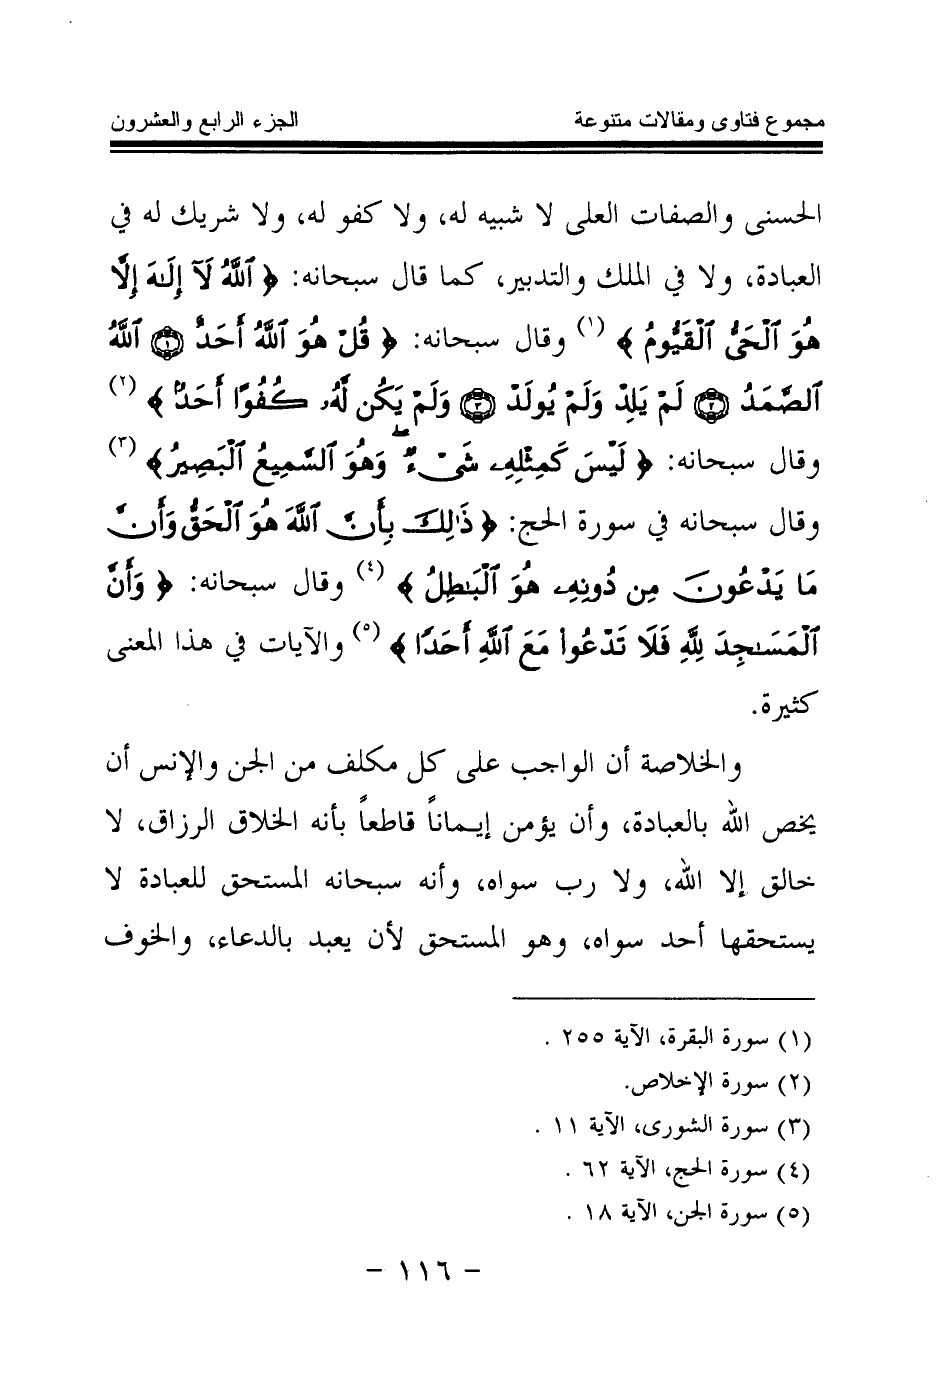 مجموع فتاوى ومقالات متنوعة الجزء الرابع والعشرون
الحسنى والصفات العلى لا شبيه له، ولا كفو له، ولا شريك له في
العبادة، ولا في الملك والتدبير، كما قال سبحانه: ﴿ ٱللَّهُ لَآ إِلَـٰهَ إِلَّا
هُوَ ٱلْحَىُّ ٱلْقَيُّومُ ﴾ (١) وقال سبحانه: ﴿ قُلْ هُوَ ٱللَّهُ أَحَدٌ ۝١ ٱللَّهُ
ٱلصَّمَدُ ۝٢ لَمْ يَلِدْ وَلَمْ يُولَدْ ۝٣ وَلَمْ يَكُن لَّهُۥ كُفُوًا أَحَدٌۢ ﴾ (٢)
وقال سبحانه: ﴿ لَيْسَ كَمِثْلِهِۦ شَىْءٌ ۖ وَهُوَ ٱلسَّمِيعُ ٱلْبَصِيرُ ﴾ (٣)
وقال سبحانه في سورة الحج: ﴿ ذَٰلِكَ بِأَنَّ ٱللَّهَ هُوَ ٱلْحَقُّ وَأَنَّ
مَا يَدْعُونَ مِن دُونِهِۦ هُوَ ٱلْبَـٰطِلُ ﴾ (٤) وقال سبحانه: ﴿ وَأَنَّ
ٱلْمَسَـٰجِدَ لِلَّهِ فَلَا تَدْعُوا۟ مَعَ ٱللَّهِ أَحَدًا ﴾ (٥) والآيات في هذا المعنى
كثيرة.
والخلاصة أن الواجب على كل مكلف من الجن والإنس أن
يخص الله بالعبادة، وأن يؤمن إيماناً قاطعاً بأنه الخلاق الرزاق، لا
خالق إلا الله، ولا رب سواه، وأنه سبحانه المستحق للعبادة لا
يستحقها أحد سواه، وهو المستحق لأن يعبد بالدعاء، والخوف
(١) سورة البقرة، الآية ٢٥٥ .
(٢) سورة الإخلاص.
(٣) سورة الشورى، الآية ١١ .
(٤) سورة الحج، الآية ٦٢ .
(٥) سورة الجن، الآية ١٨ .
- ١١٦ -